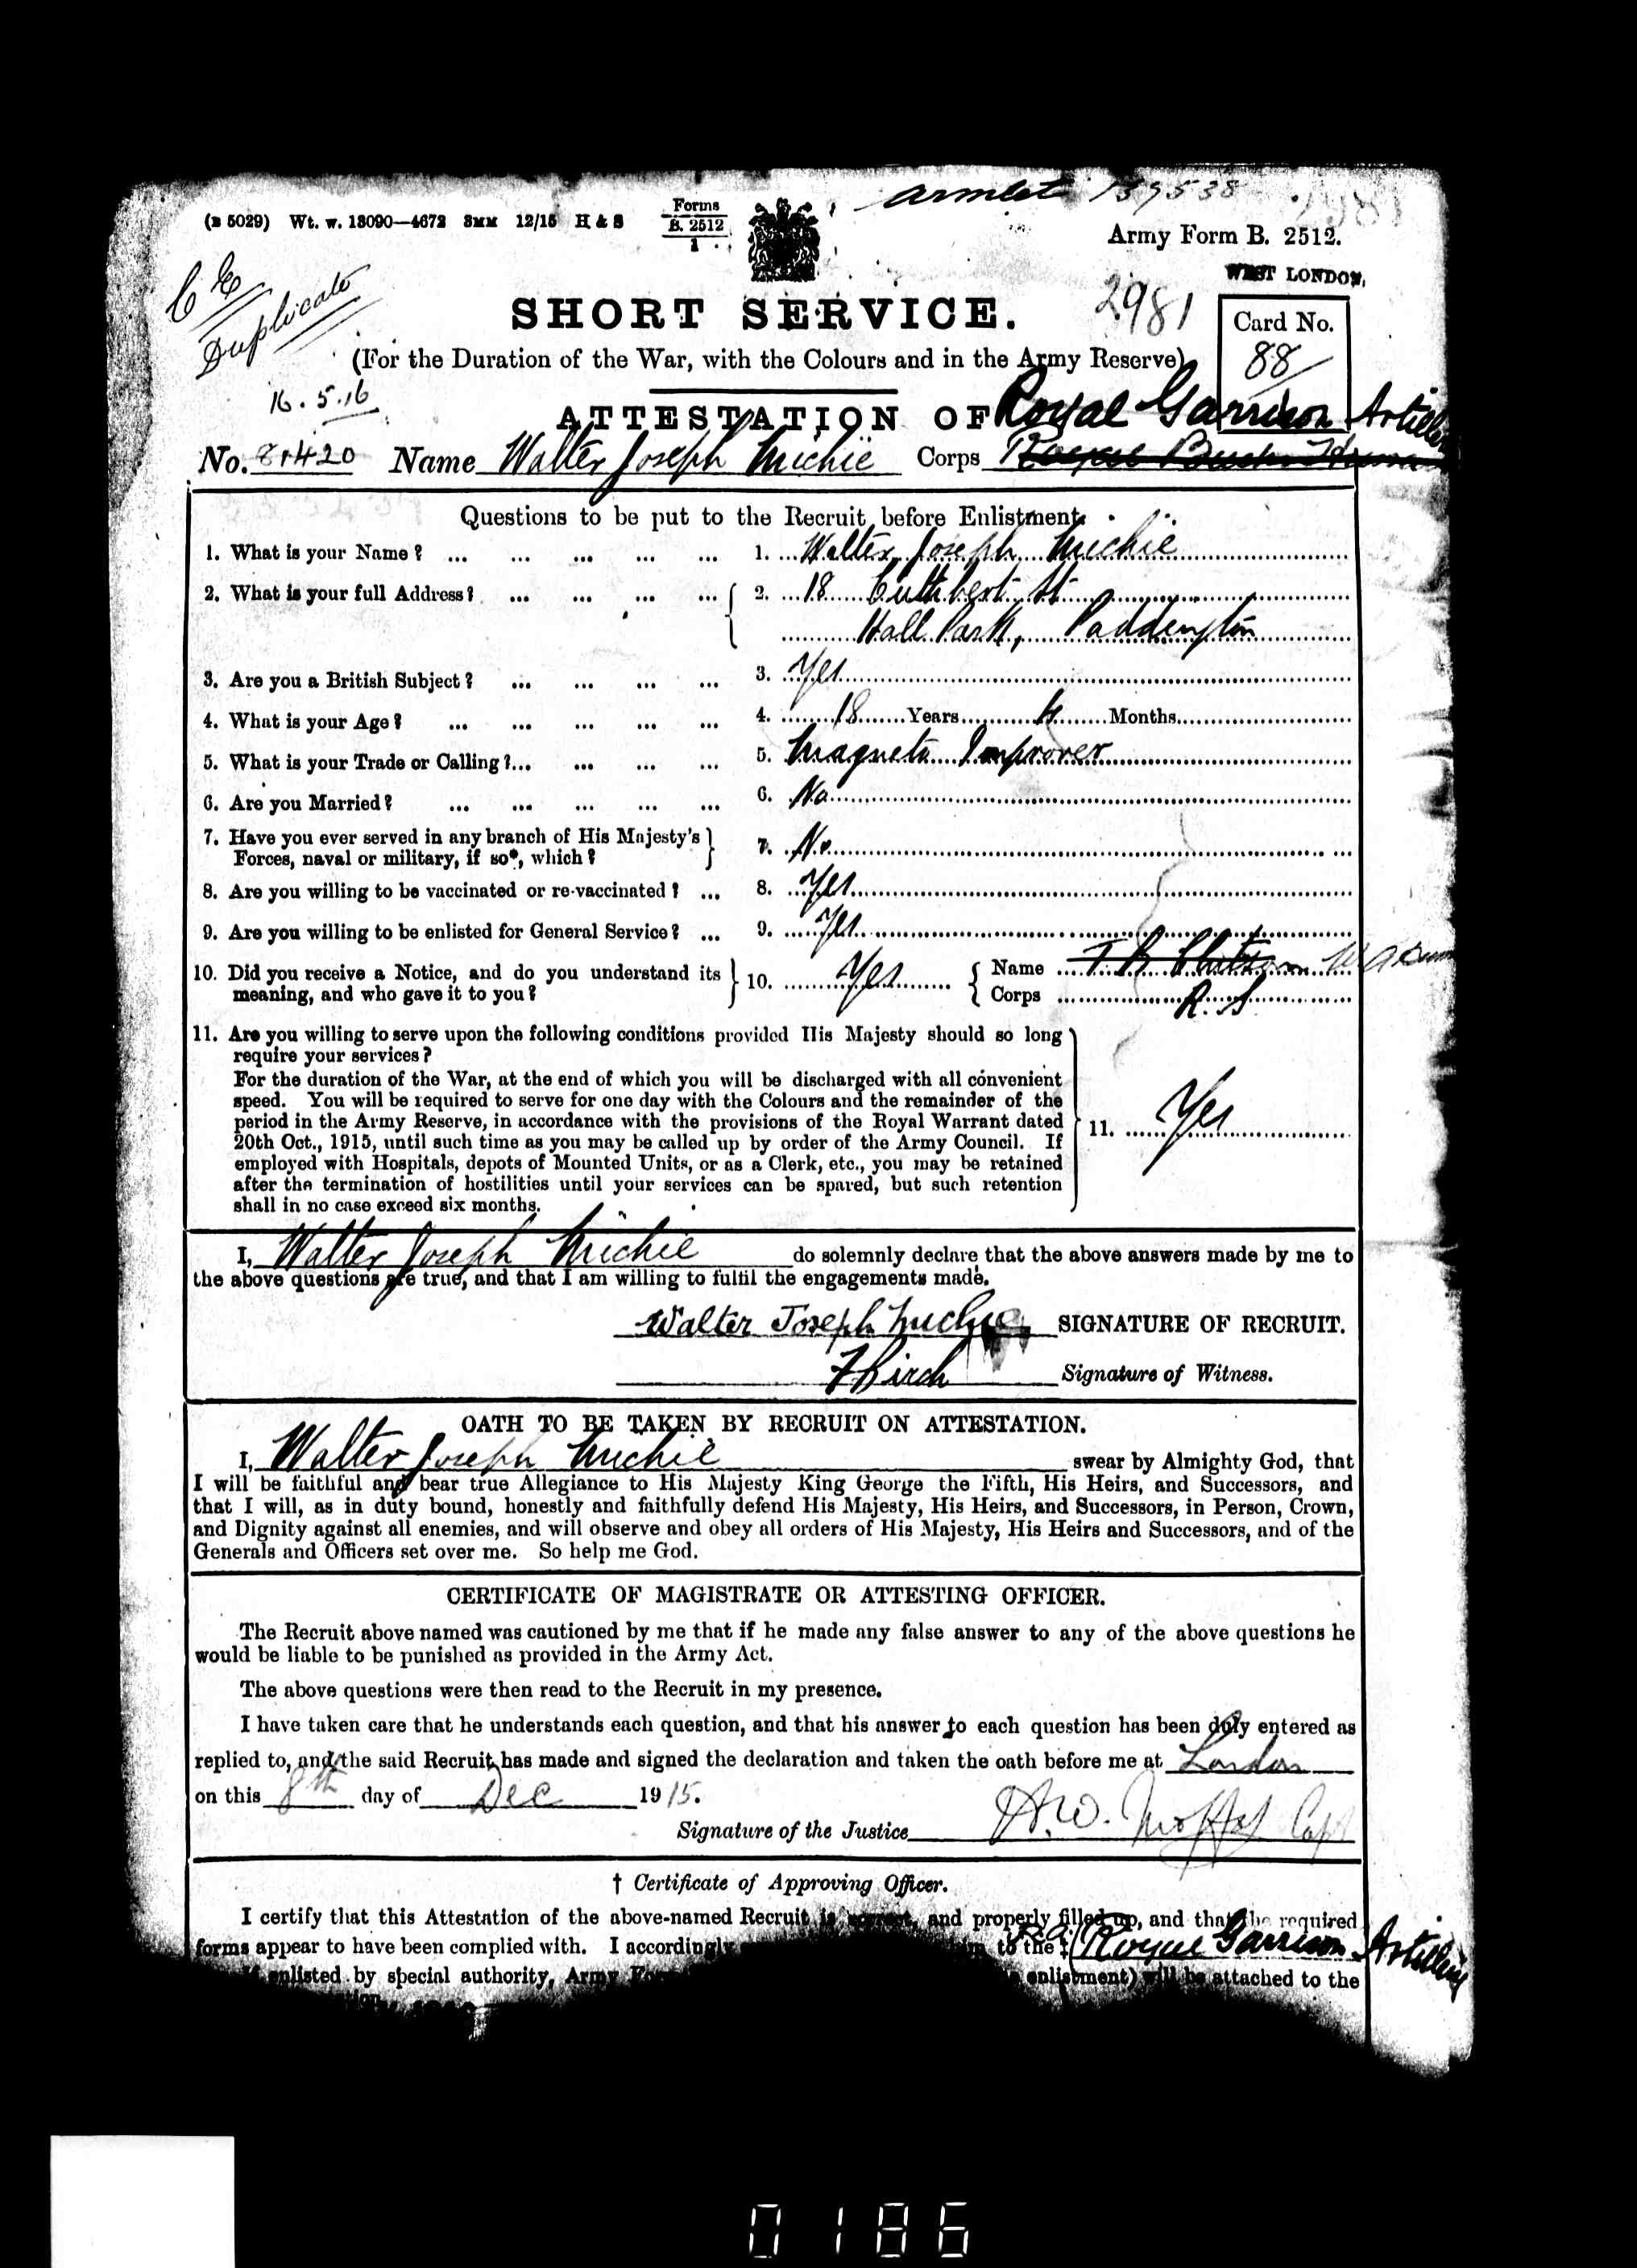 armlet 139538
(B 5029) Wt. w. 13090—4672 3MM 12/15 H & S Forms B. 2512 1
Army Form B. 2512.
WEST LONDON,
Duplicate
16.5.16
2981
Card No.
88
SHORT SERVICE.
(For the Duration of the War, with the Colours and in the Army Reserve)
ATTESTATION OF
Royal Garrison Artillery
No. 81420 Name Walter Joseph Michie Corps
Questions to be put to the Recruit before Enlistment.
1. What is your Name? ... ... ... ... ... 1. Walter Joseph Michie
2. What is your full Address? ... ... ... ... 2. 18 Cuthbert St
Hall Park, Paddington
3. Are you a British Subject? ... ... ... ... 3. Yes
4. What is your Age? ... ... ... ... ... 4. 18 Years 4 Months
5. What is your Trade or Calling?... ... ... ... 5. Magneto Improver
6. Are you Married? ... ... ... ... ... 6. No
7. Have you ever served in any branch of His Majesty's
Forces, naval or military, if so*, which? 7. No
8. Are you willing to be vaccinated or re-vaccinated? ... 8. Yes
9. Are you willing to be enlisted for General Service? ... 9. Yes
10. Did you receive a Notice, and do you understand its
meaning, and who gave it to you? 10. Yes Name
Corps R.S.
11. Are you willing to serve upon the following conditions provided His Majesty should so long
require your services?
For the duration of the War, at the end of which you will be discharged with all convenient
speed. You will be required to serve for one day with the Colours and the remainder of the
period in the Army Reserve, in accordance with the provisions of the Royal Warrant dated
20th Oct., 1915, until such time as you may be called up by order of the Army Council. If
employed with Hospitals, depots of Mounted Units, or as a Clerk, etc., you may be retained
after the termination of hostilities until your services can be spared, but such retention
shall in no case exceed six months.
11. Yes
I, Walter Joseph Michie do solemnly declare that the above answers made by me to
the above questions are true, and that I am willing to fulfil the engagements made.
Walter Joseph Michie SIGNATURE OF RECRUIT.
F Birch Signature of Witness.
OATH TO BE TAKEN BY RECRUIT ON ATTESTATION.
I, Walter Joseph Michie swear by Almighty God, that
I will be faithful and bear true Allegiance to His Majesty King George the Fifth, His Heirs, and Successors, and
that I will, as in duty bound, honestly and faithfully defend His Majesty, His Heirs, and Successors, in Person, Crown,
and Dignity against all enemies, and will observe and obey all orders of His Majesty, His Heirs and Successors, and of the
Generals and Officers set over me. So help me God.
CERTIFICATE OF MAGISTRATE OR ATTESTING OFFICER.
The Recruit above named was cautioned by me that if he made any false answer to any of the above questions he
would be liable to be punished as provided in the Army Act.
The above questions were then read to the Recruit in my presence.
I have taken care that he understands each question, and that his answer to each question has been duly entered as
replied to, and the said Recruit has made and signed the declaration and taken the oath before me at London
on this 8th day of Dec 1915.
Signature of the Justice A.W. Moffat Capt
† Certificate of Approving Officer.
I certify that this Attestation of the above-named Recruit is correct, and properly filled up, and that the required
forms appear to have been complied with. I accordingly to the ‡ Royal Garrison Artillery
enlisted by special authority, Army enlistment) will be attached to the
0186